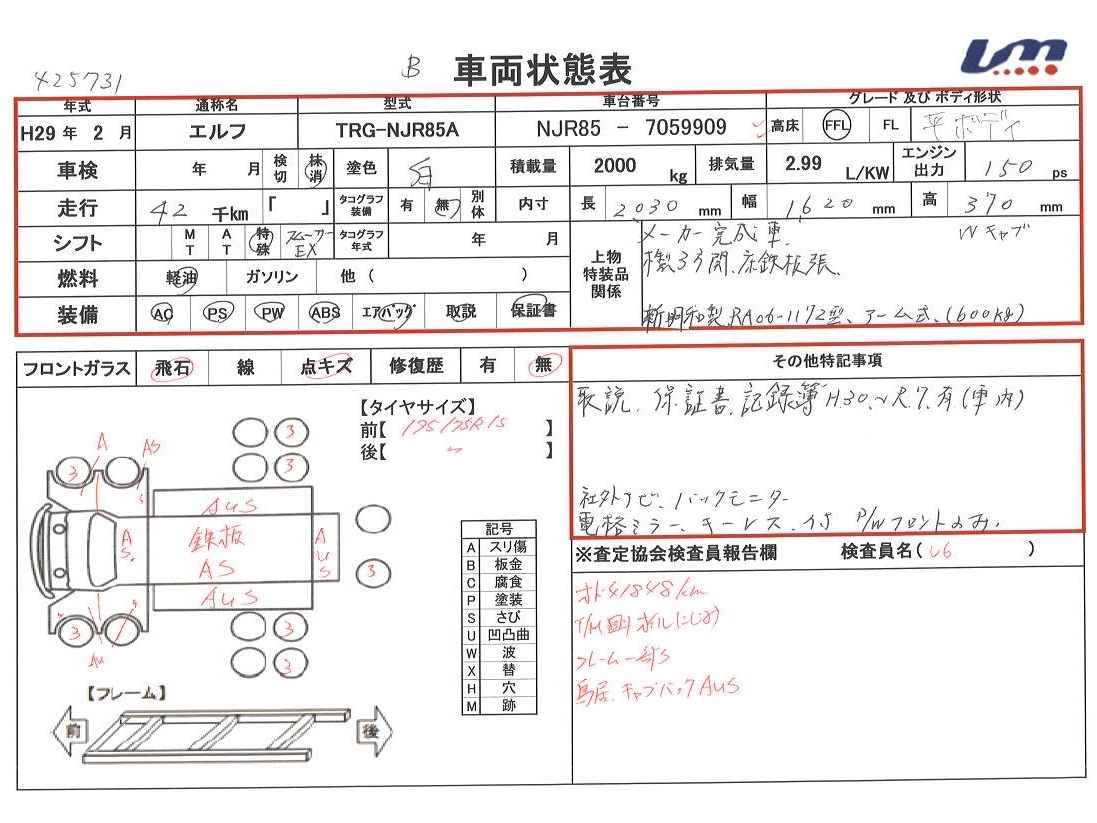 425731
B 車両状態表 UM
年式 通称名 型式 車台番号 グレード 及び ボディ形状
H29 年 2 月 エルフ TRG-NJR85A NJR85 - 7059909 高床 FFL FL 平ボディ
車検 年 月 検切 抹消 塗色 白 積載量 2000 kg 排気量 2.99 L/KW エンジン出力 150 ps
走行 42 千km 「 」 タコグラフ装備 有 無 別体 内寸 長 2030 mm 幅 1,620 mm 高 370 mm
シフト MT AT 特殊 スムーサーEX タコグラフ年式 年 月 上物特装品関係 メーカー完成車. Wキャブ
燃料 軽油 ガソリン 他 ( ) 3方開.床鉄板張.
装備 AC PS PW ABS エアバッグ 取説 保証書 新明和製.RA06-1172型、アーム式、(600kg)
フロントガラス 飛石 線 点キズ 修復歴 有 無
その他特記事項
取説.保証書.記録簿H30.~R.7.有(車内)
社外ナビ.バックモニター
電格ミラー.キーレス.付 P/Wフロントのみ.
【タイヤサイズ】
前【 195/75R15 】
後【 〃 】
A AS 3 3 3 3 3 3 3 3
AUS
鉄板
AS
AUS
AS.
AUS
AU
記号
A スリ傷
B 板金
C 腐食
P 塗装
S さび
U 凹凸曲
W 波
X 替
H 穴
M 跡
【フレーム】
前 後
※査定協会検査員報告欄 検査員名( U6 )
オド41848km
T/M回りオイルにじみ
フレーム一部S
鳥居.キャブバックAUS